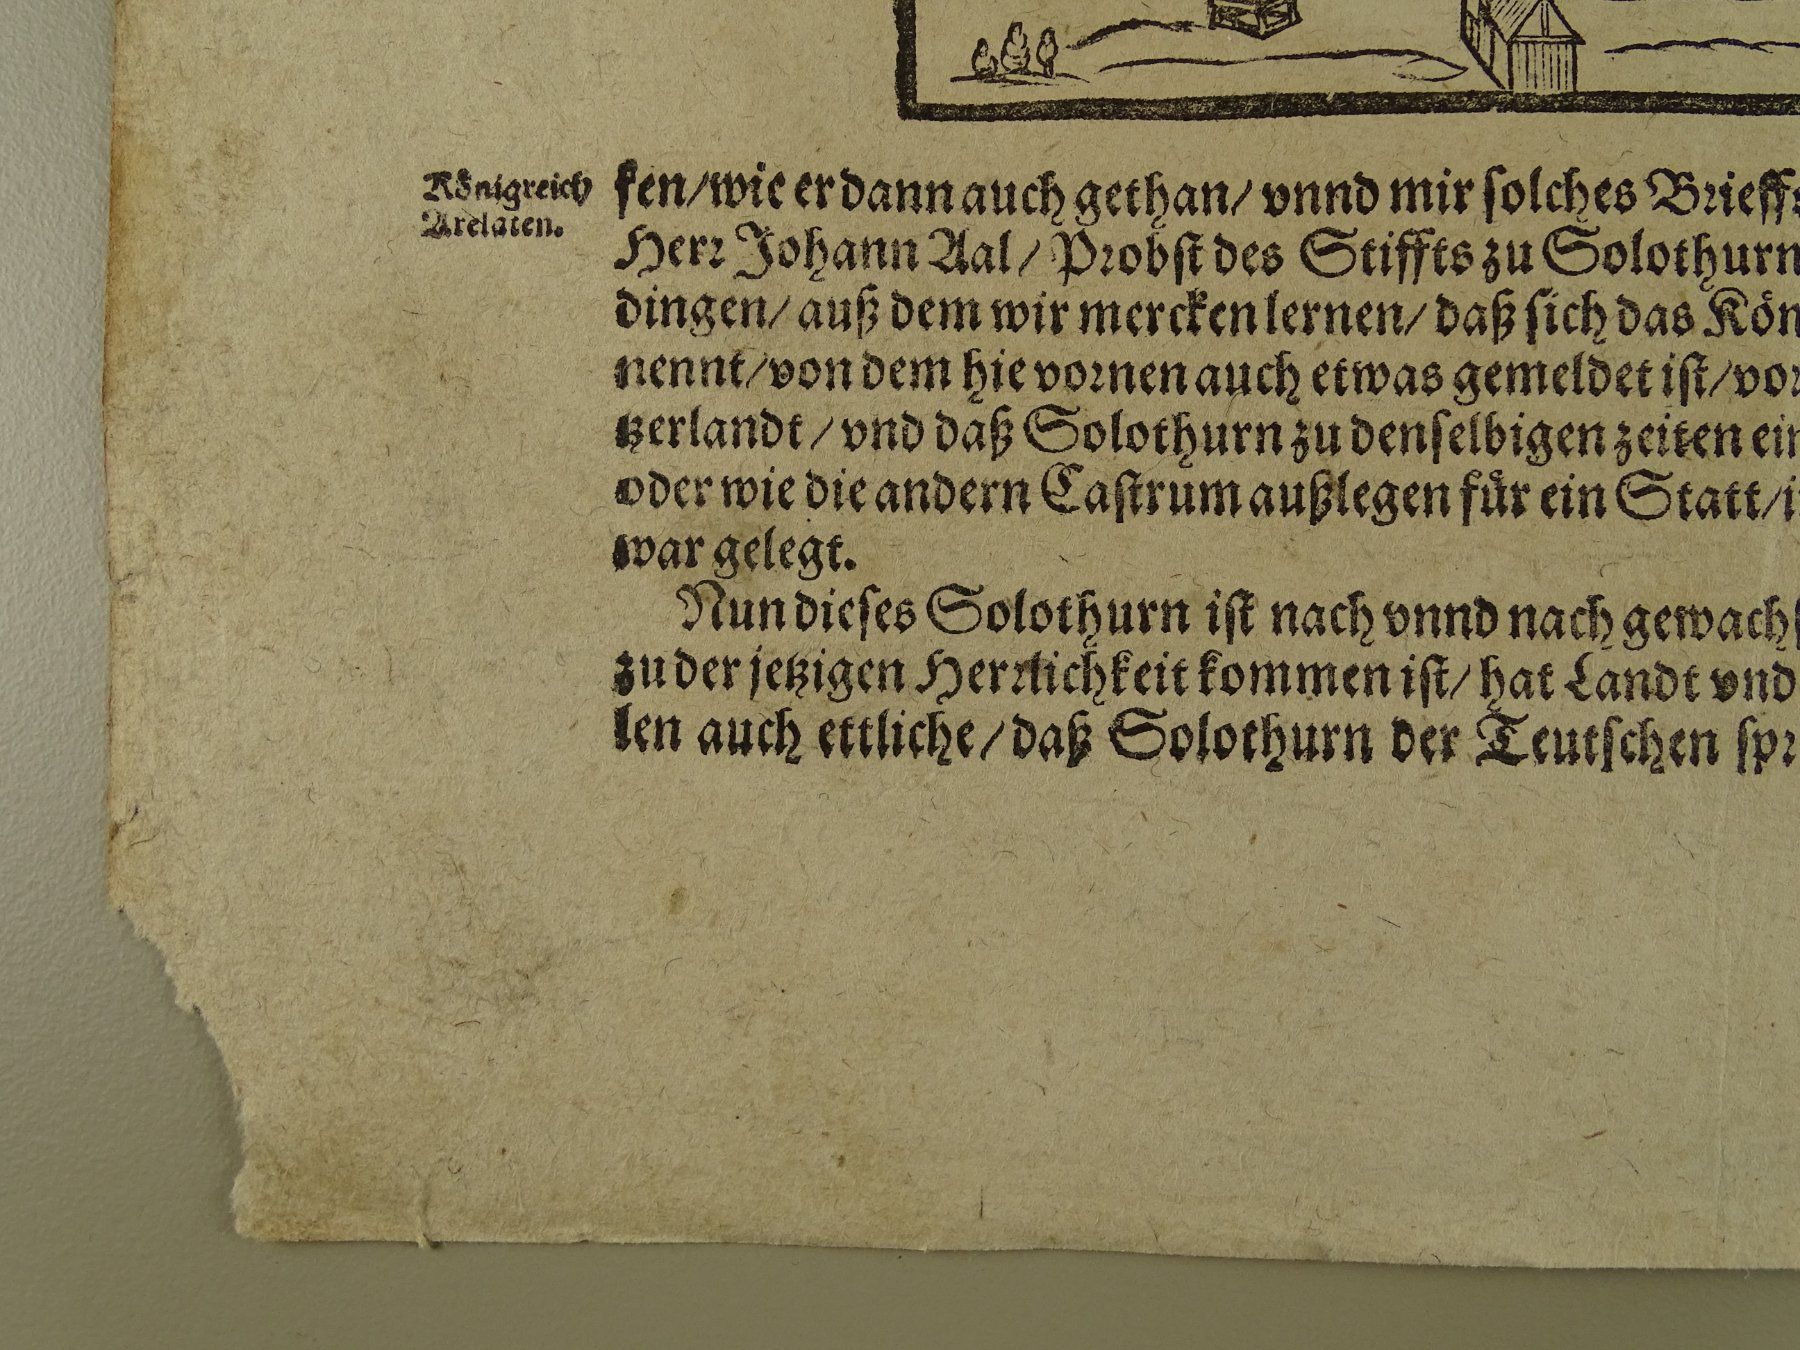 Königreich
Arelaten.
ken/wie er dann auch gethan/ vnnd mir solches Brieffs
Herr Johann Aal/ Probst des Stiffts zu Solothurn
dingen/ auß dem wir mercken lernen/ daß sich das Kön
nennt/von dem hie vornen auch etwas gemeldet ist/vor
tzerlandt/ vnd daß Solothurn zu denselbigen zeiten ein
oder wie die andern Castrum außlegen für ein Statt/i
war gelegt.
Nun dieses Solothurn ist nach vnnd nach gewachs
zu der jetzigen Herrlichkeit kommen ist/ hat Landt vnd
len auch ettliche/ daß Solothurn der Teutschen spr